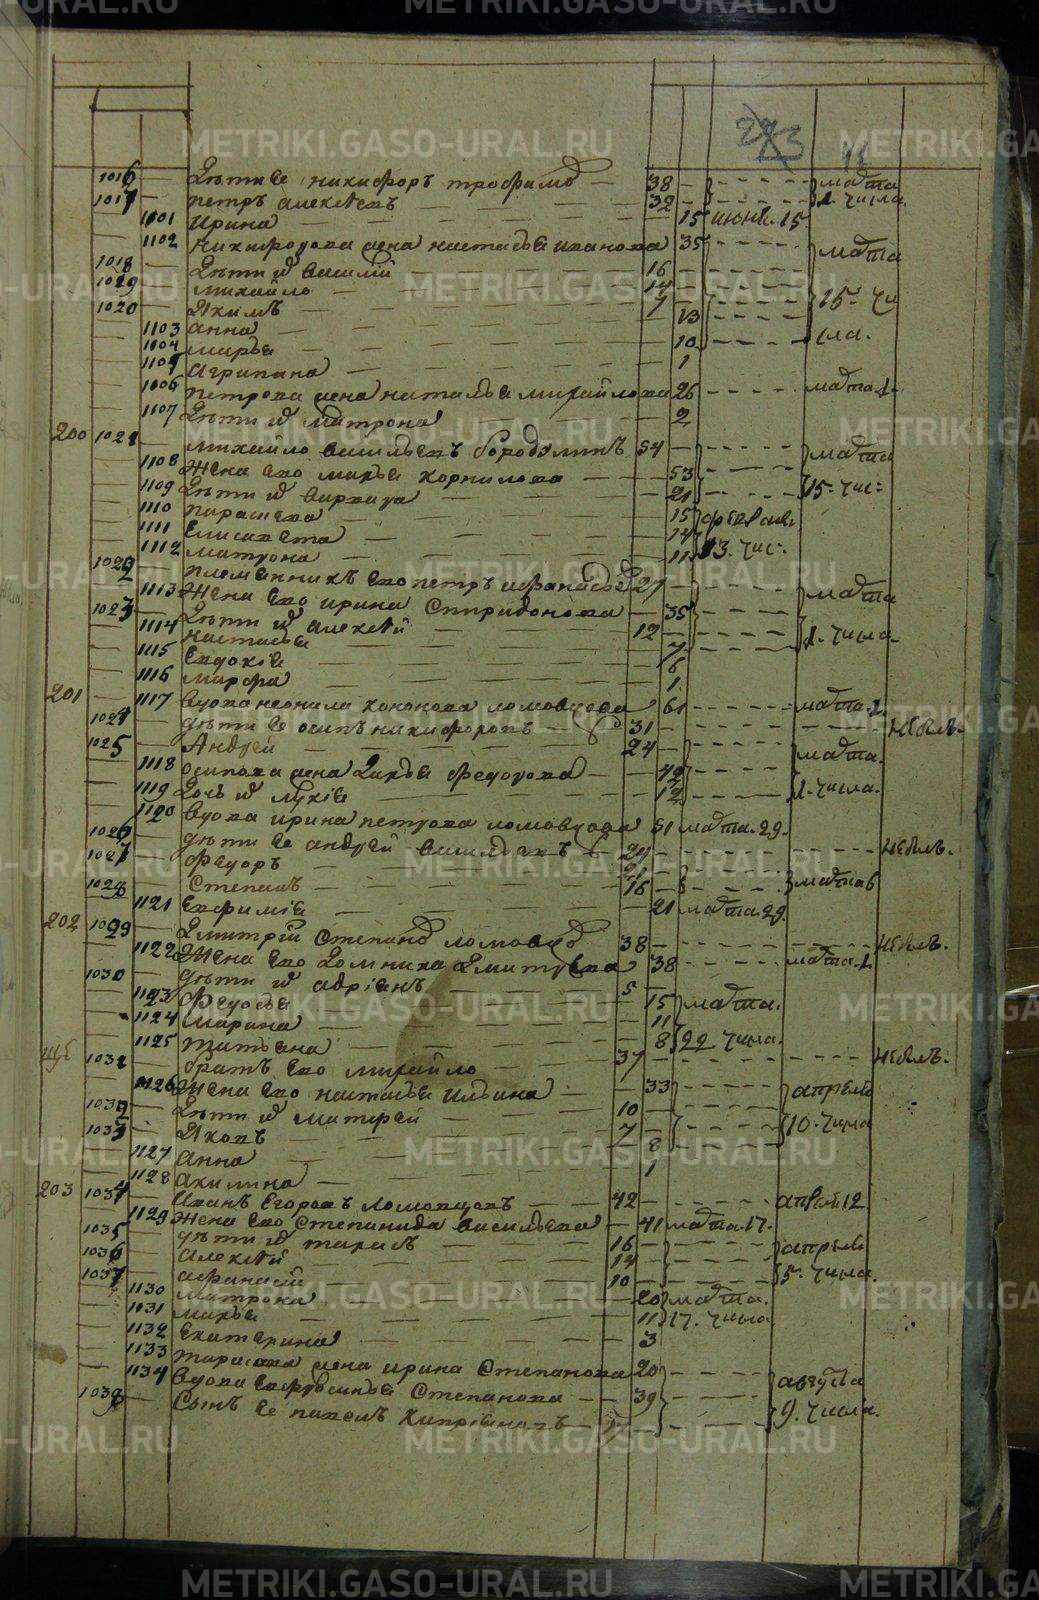 METRIKI.GASO-URAL.RU
1016 — Дѣти ее никифоръ трофимо — 38 — марта
1017 — петръ алексѣевъ — 32 — 1. числа.
1101 Ирина — 15 июня. 15
1102 никифорова жена настасья иванова 35 марта
1018 — Дѣти их василий — 16 —
1019 — михайло — 14 — 15. чи
1020 — Якимъ — 7 —
1103 анна — 13 сла.
1104 марья — 10
1105 агрипина — 1
1106 петрова жена наталья михайлова 26 марта 1.
1107 Дѣти их матрона — 2
200 1021 — михайло васильевъ бородулинъ 54 — марта
1108 жена ево марья корнилова — 53 15. чис:
1109 Дѣти их варвара — 21
1110 парасковья — 15 февраля
1111 Елисавета — 14
1112 матрона — 11 13. чис:
1022 — племянникъ ево петръ афанасьев 27 — марта
1113 жена ево ирина Спиридонова — 35
1023 — Дѣти их алексѣй — 12 — 1. числа.
1114 настасья — 7
1115 Евдокия — 6
1116 марфа — 1
201 1117 вдова неонила кононова ломовцова 61 марта. 1.
1024 — дѣти ее осипъ никифоровъ — 31 — небылъ.
1025 — Андрей — 24 — марта.
1118 осипова жена Дарья федорова — 42
1119 Дочь их лукия — 12 1. числа.
1120 вдова ирина петрова ломовцова 51 марта. 29.
1026 — дѣти ее андрей васильевъ — небылъ.
1027 — Федоръ — 21 —
1028 — Степанъ — 16 — марта 6
1121 Евфимия — 21 марта. 29.
202 1029 — Дмитрий Степано ломовцо 38 — небылъ.
1122 жена ево Домника Дмитрева 38 марта. 1.
1030 — дѣти их адриянъ — 5 —
1123 Федосья — 15 марта.
1124 Марина — 11
1125 татьяна — 8 22. числа.
1031 — братъ ево михайло — 37 — небылъ.
1126 жена ево настасья Ильина — 33 апреля
1032 — Дѣти их матфей — 10 — 10. числа
1033 — Яковъ — 7 —
1127 анна — 8
1128 акилина — 1
203 1034 — Иванъ Егоровъ ломовцовъ — 42 — апреля 12.
1129 жена ево Степанида васильева — 41 марта. 17.
1035 — дѣти их тарасъ — 16 — апреля
1036 — алексѣй — 14 —
1037 — афанасей — 10 — 5. числа.
1130 матрона — 20 марта.
1131 марья — 11 17. числа
1132 Екатерина — 3
1133 тарасова жена ирина Степанова 20 августа
1134 вдова Степанова — 39
1038 — Сынъ ее павелъ киприяновъ — 9. числа.